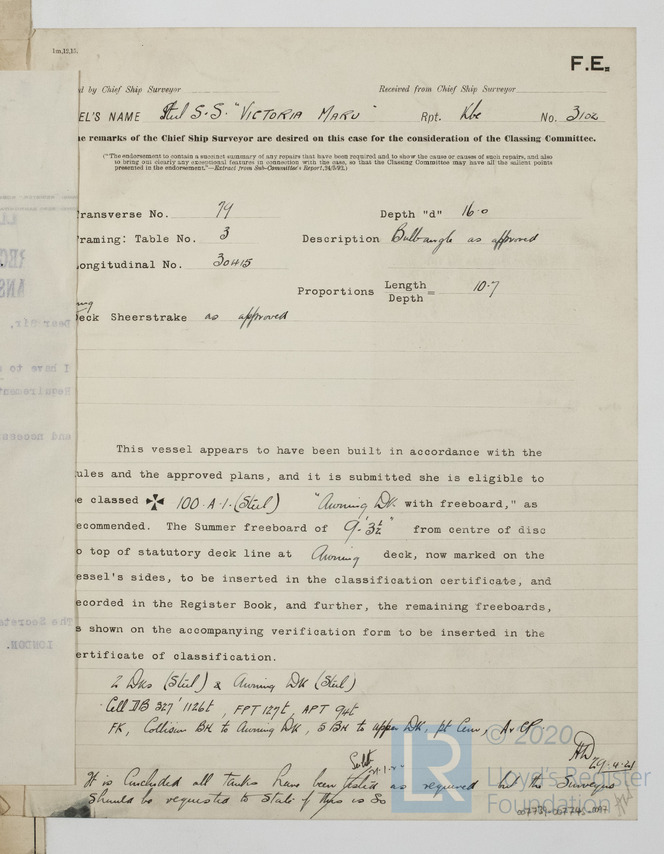 1m,12,15.
F.E.
d by Chief Ship Surveyor Received from Chief Ship Surveyor
EL'S NAME Steel S.S. "VICTORIA MARU" Rpt. Kbe No. 3102
he remarks of the Chief Ship Surveyor are desired on this case for the consideration of the Classing Committee.
("The endorsement to contain a succinct summary of any repairs that have been required and to show the cause or causes of such repairs, and also
to bring out clearly any exceptional features in connection with the case, so that the Classing Committee may have all the salient points
presented in the endorsement."—Extract from Sub-Committee's Report,
Transverse No. 79 Depth "d" 16.0
Framing: Table No. 3 Description Bulb angle as approved
Longitudinal No. 30415
Proportions Length / Depth = 10.7
ng
eck Sheerstrake as approved
This vessel appears to have been built in accordance with the
ules and the approved plans, and it is submitted she is eligible to
e classed ✠ 100.A.1.(Steel) "Awning Dk. with freeboard," as
ecommended. The Summer freeboard of 9'-3½" from centre of disc
o top of statutory deck line at Awning deck, now marked on the
essel's sides, to be inserted in the classification certificate, and
ecorded in the Register Book, and further, the remaining freeboards,
s shown on the accompanying verification form to be inserted in the
ertificate of classification.
2 Dks (Steel) & Awning Dk (Steel)
Cell DB 327' 1126t, FPT 127t, APT 94t
FK, Collision BH to Awning Dk, 5 BH to upper Dk, pt Cem,
29.4.21
It is concluded all tanks have been tested as required but the Surveyors
should be requested to state if this is so
© 2020
LR
Lloyd's Register
Foundation
007739-007742-0097
Dear Sir,
I have to
Requirement
and necess
The Secreta
LONDON.